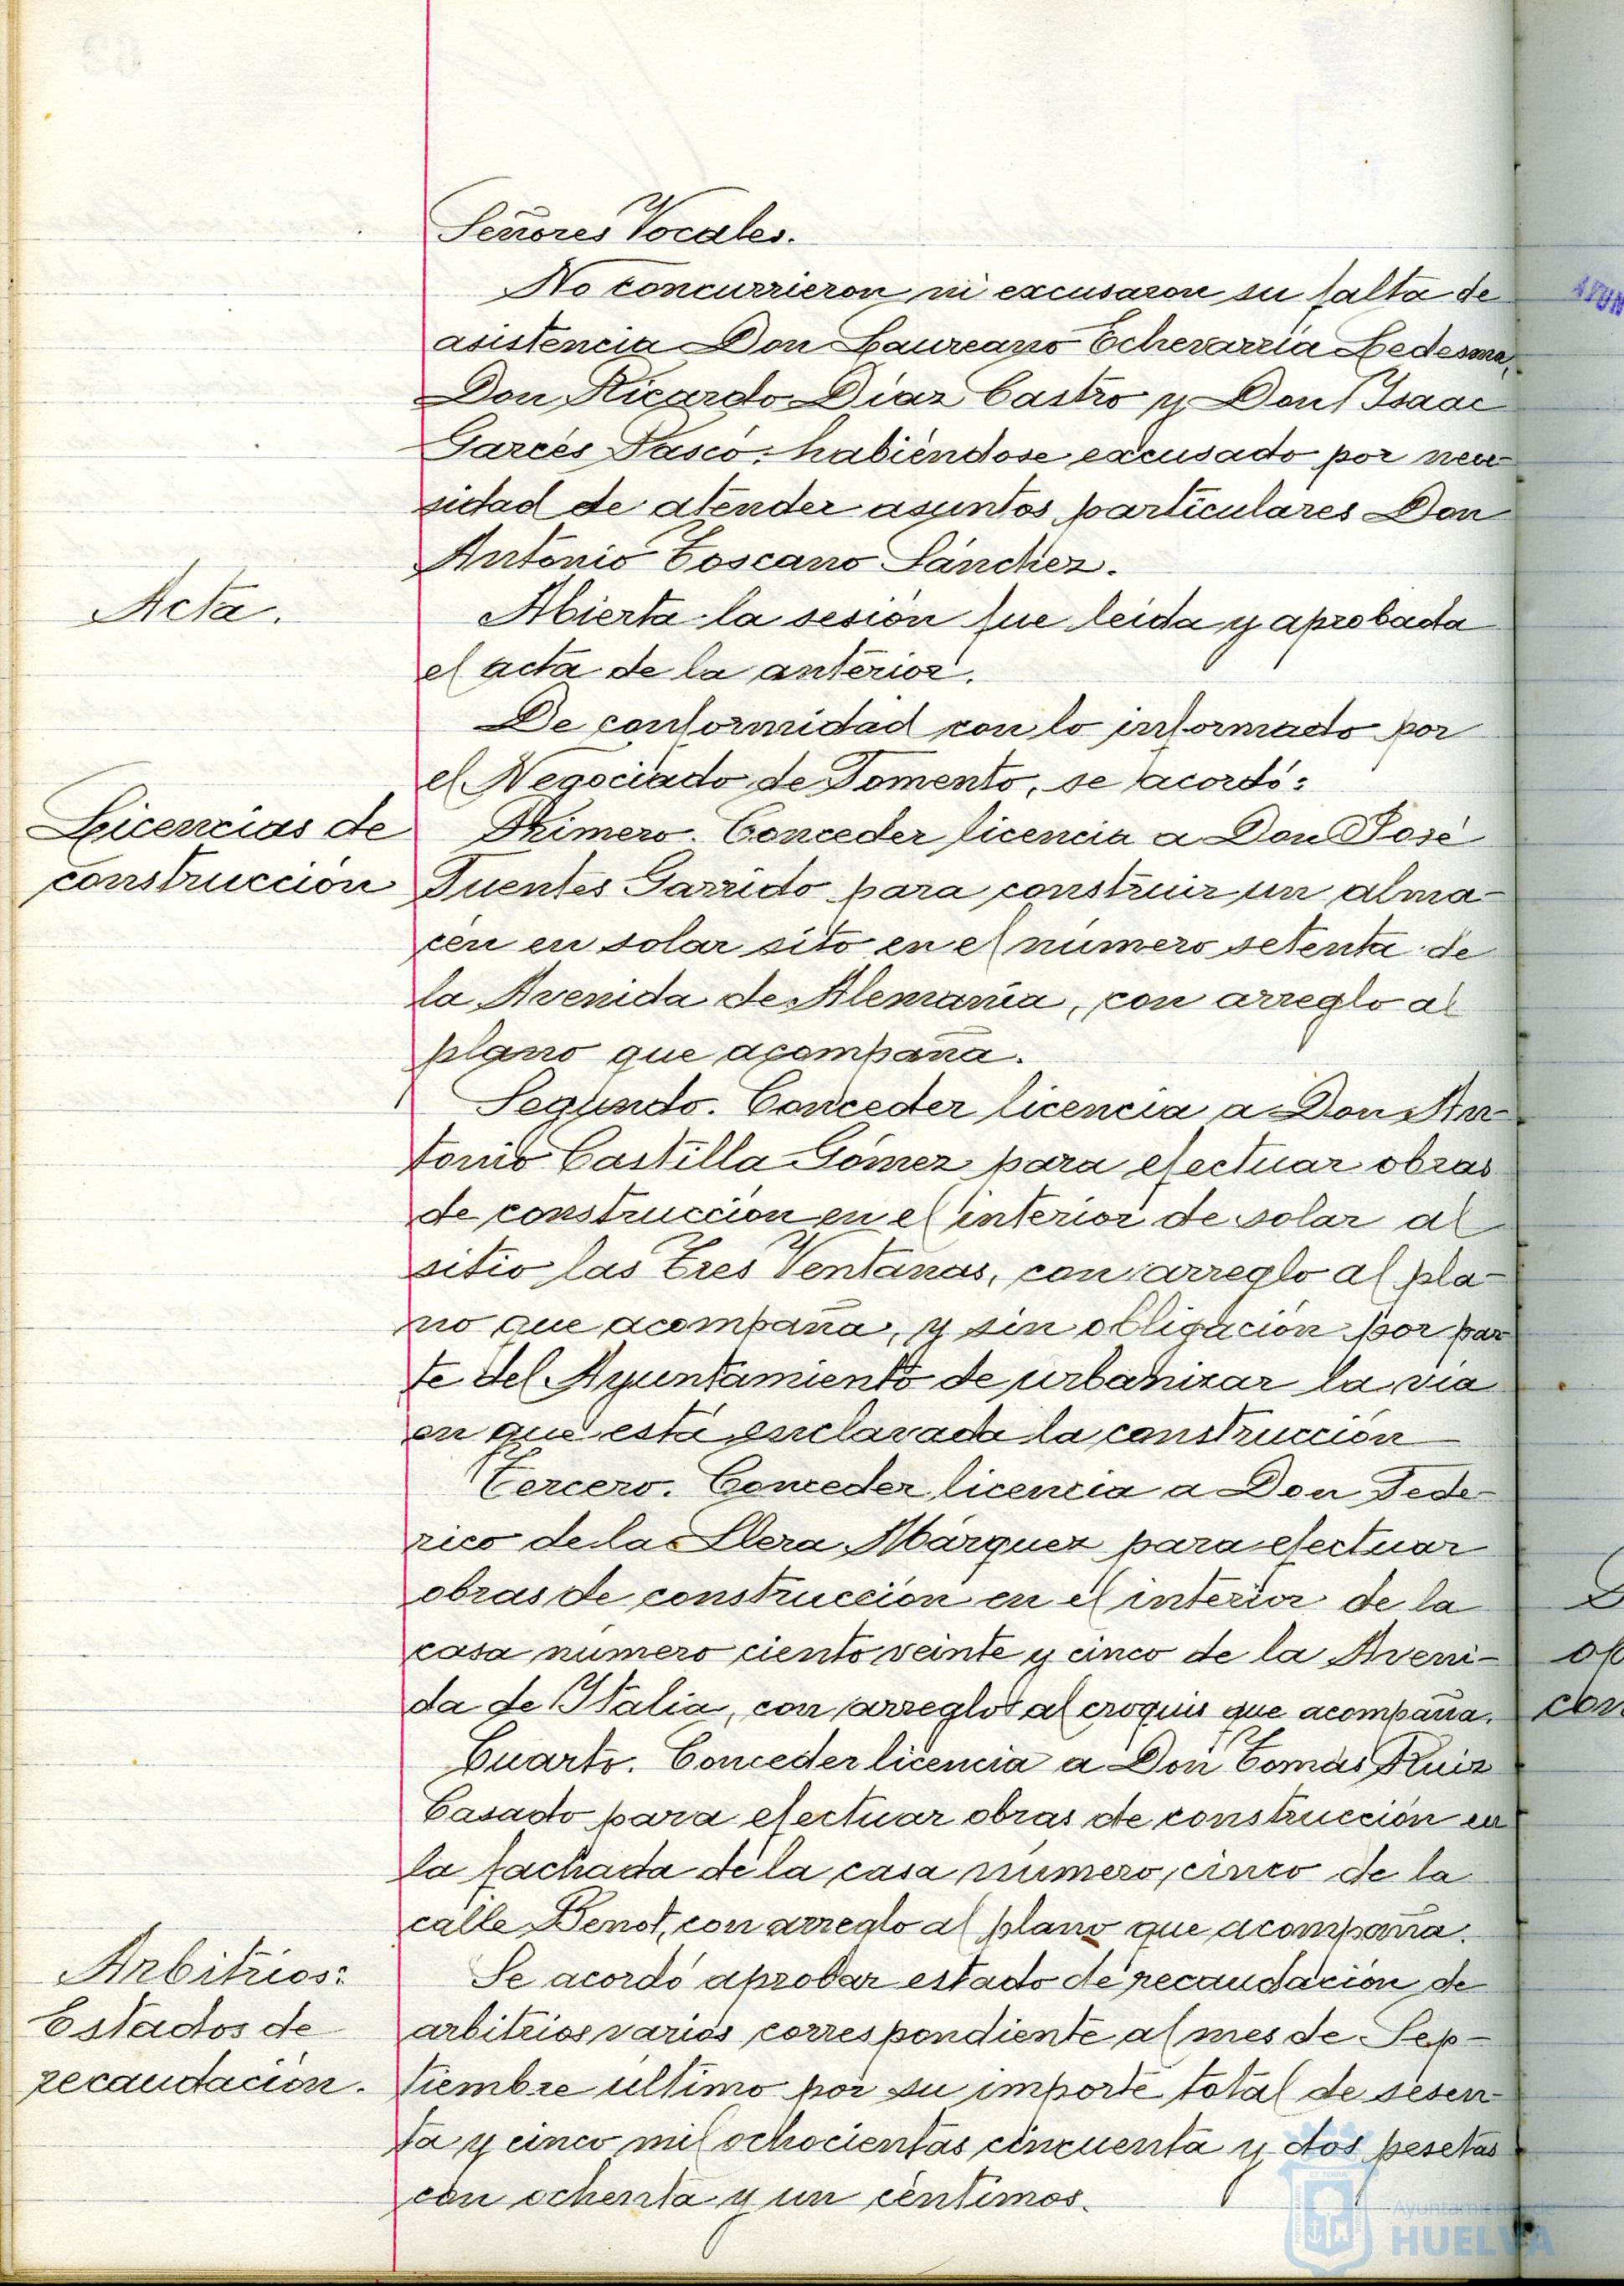 Señores Vocales.
No concurrieron ni excusaron su falta de
asistencia Don Laureano Echevarría Ledesma,
Don Ricardo Díaz Castro y Don Isaac
Garcés Pascó, habiéndose excusado por nece
sidad de atender asuntos particulares Don
Antonio Toscano Sánchez.
Acta.
Abierta la sesión fue leída y aprobada
el acta de la anterior.
De conformidad con lo informado por
el Negociado de Fomento, se acordó:
Licencias de
construcción
Primero. Conceder licencia a Don José
Fuentes Garrido para construir un alma-
cén en solar sito en el número setenta de
la Avenida de Alemania, con arreglo al
plano que acompaña.
Segundo. Conceder licencia a Don An-
tonio Castilla Gómez para efectuar obras
de construcción en el interior de solar al
sitio las Tres Ventanas, con arreglo al pla-
no que acompaña, y sin obligación por par
te del Ayuntamiento de urbanizar la vía
en que está enclavada la construcción
Tercero. Conceder licencia a Don Fede-
rico de la Llera Márquez para efectuar
obras de construcción en el interior de la
casa número ciento veinte y cinco de la Aveni-
da de Italia, con arreglo al croquis que acompaña.
Cuarto. Conceder licencia a Don Tomás Ruiz
Casado para efectuar obras de construcción en
la fachada de la casa número cinco de la
calle Benot, con arreglo al plano que acompaña.
Arbitrios:
Estados de
recaudación.
Se acordó aprobar estado de recaudación de
arbitrios varios correspondiente al mes de Sep-
tiembre último por su importe total de sesen-
ta y cinco mil ochocientas cincuenta y dos pesetas
con ochenta y un céntimos.
Ayuntamiento de
HUELVA